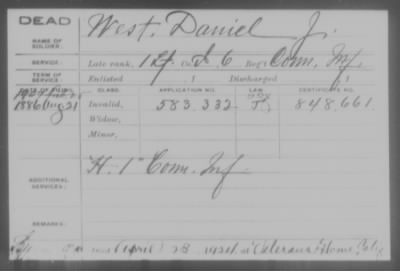 DEAD
NAME OF SOLDIER:
West, Daniel J.
SERVICE:
Late rank, 1 Lt Co. I, 6 Reg't Conn. Inf.
TERM OF SERVICE:
Enlisted , 1 Discharged , 1
DATE OF FILING.
CLASS.
APPLICATION NO.
LAW.
CERTIFICATE NO.
1886 Aug 21
Invalid,
583.332
848.661
Widow,
Minor,
ADDITIONAL SERVICES:
H. 1" Conn. Inf
REMARKS:
April 28, 1924 at Veterans Home,